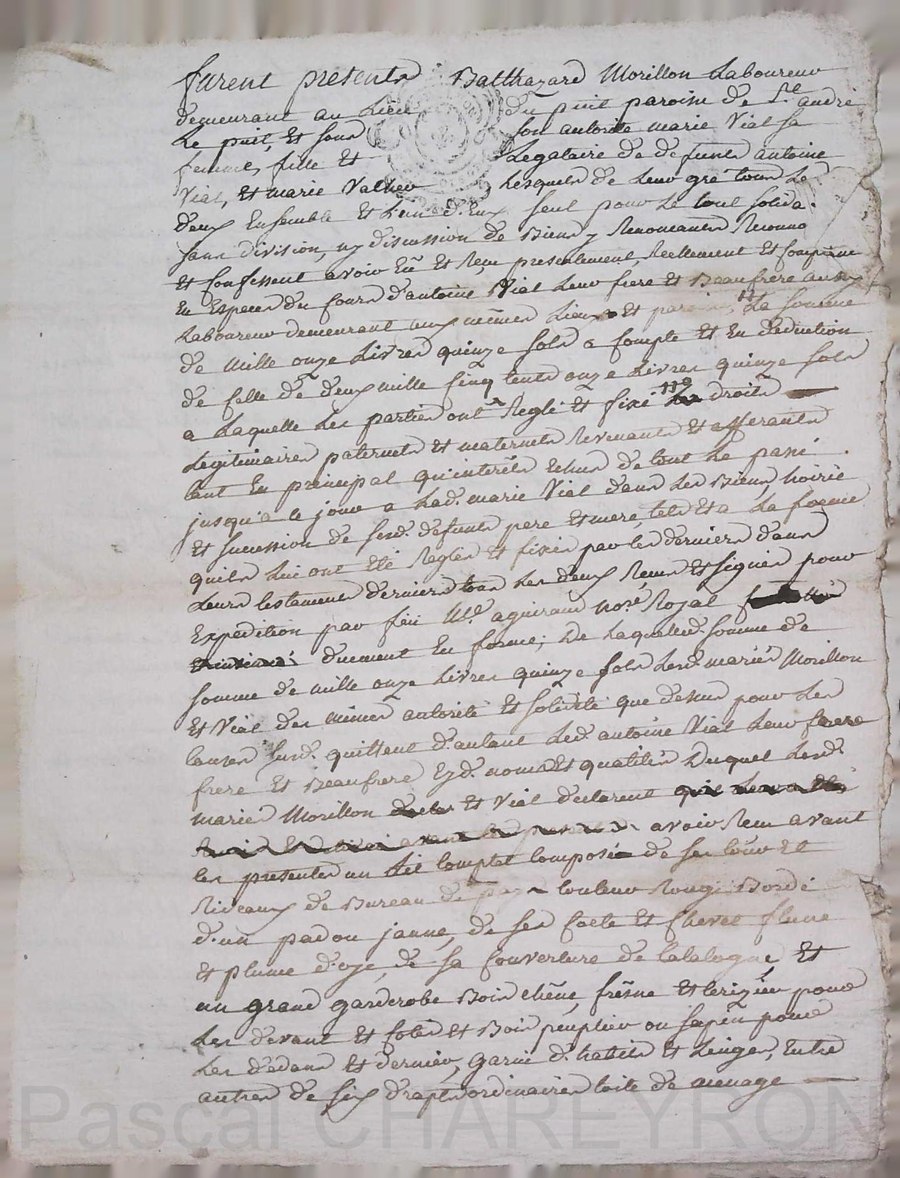 furent presents Balthazard Morillon Laboureur
demeurant au Lieu du puit paroisse de St andré
Le puit, Et sous son autorité marie Vial sa
femme, fille et Legataire de defunts antoine
Vial, et marie Valhev Lesquels de Leur gré tous Les
deux Ensemble Et L'un d'Eux seul pour Le tout solida.
sans division, ny discussion de Biens y Renonceants Reconnoi
Et Confessent avoir Eü Et Reçu presentement, Reellement Et Comptant
En Especes du Cours d'antoine Vial Leur frere Et Beaufrere aussy
Laboureur demeurant aux mêmes Lieu Et paroisse, La somme
de mille onze Livres quinze sols a Compte Et En deduction
de Celle de deux mille Cinq Cents onze Livres quinze sols
a Laquelle Les parties ont Reglé Et fixé Les droits
Legitimaires paternels et maternels Revenants Et afferants
tant En principal qu'interêts Echus de tout Le passé
jusqu'a ce jour a Lad. marie Vial dans Les Biens, hoirie
Et succession de sesd. defunts pere Et mere, tels Et a La forme
quils Lui ont Eté Reglés Et fixés par les derniers dans
Leurs testaments derniers tous Les deux Reçus Et signés pour
Expedition par feu Me aguiraud nore Royal
duement En forme; De Laquelled. somme de
somme de mille onze Livres quinze sols Lesd. mariés Morillon
Et Vial des mêmes autorité Et solidité que dessus pour Les
causes susd. quittent d'autant Led. antoine Vial Leur frere
frere Et Beaufrere Esd. noms Et qualités Duquel Lesd.
mariés Morillon Et Vial declarent
avoir Reçu avant
les presentes un Lit Complet Composé de ses tour Et
Rideaux de Bureau de couleur Rouge Bordé
d'un padou jaune, de ses Coete Et Chevet
Et plume d'oye, de sa Couverture de Catalogne Et
un grand garderobe Bois chêne, frêsne Et Cerizier pour
Les devant Et Cotés Et Bois peuplier ou sapin pour
Les dedans Et dernier, garni d'habits Et Linges, Entre
autres de six draps ordinaires toile de menage
Pascal CHAREYRON